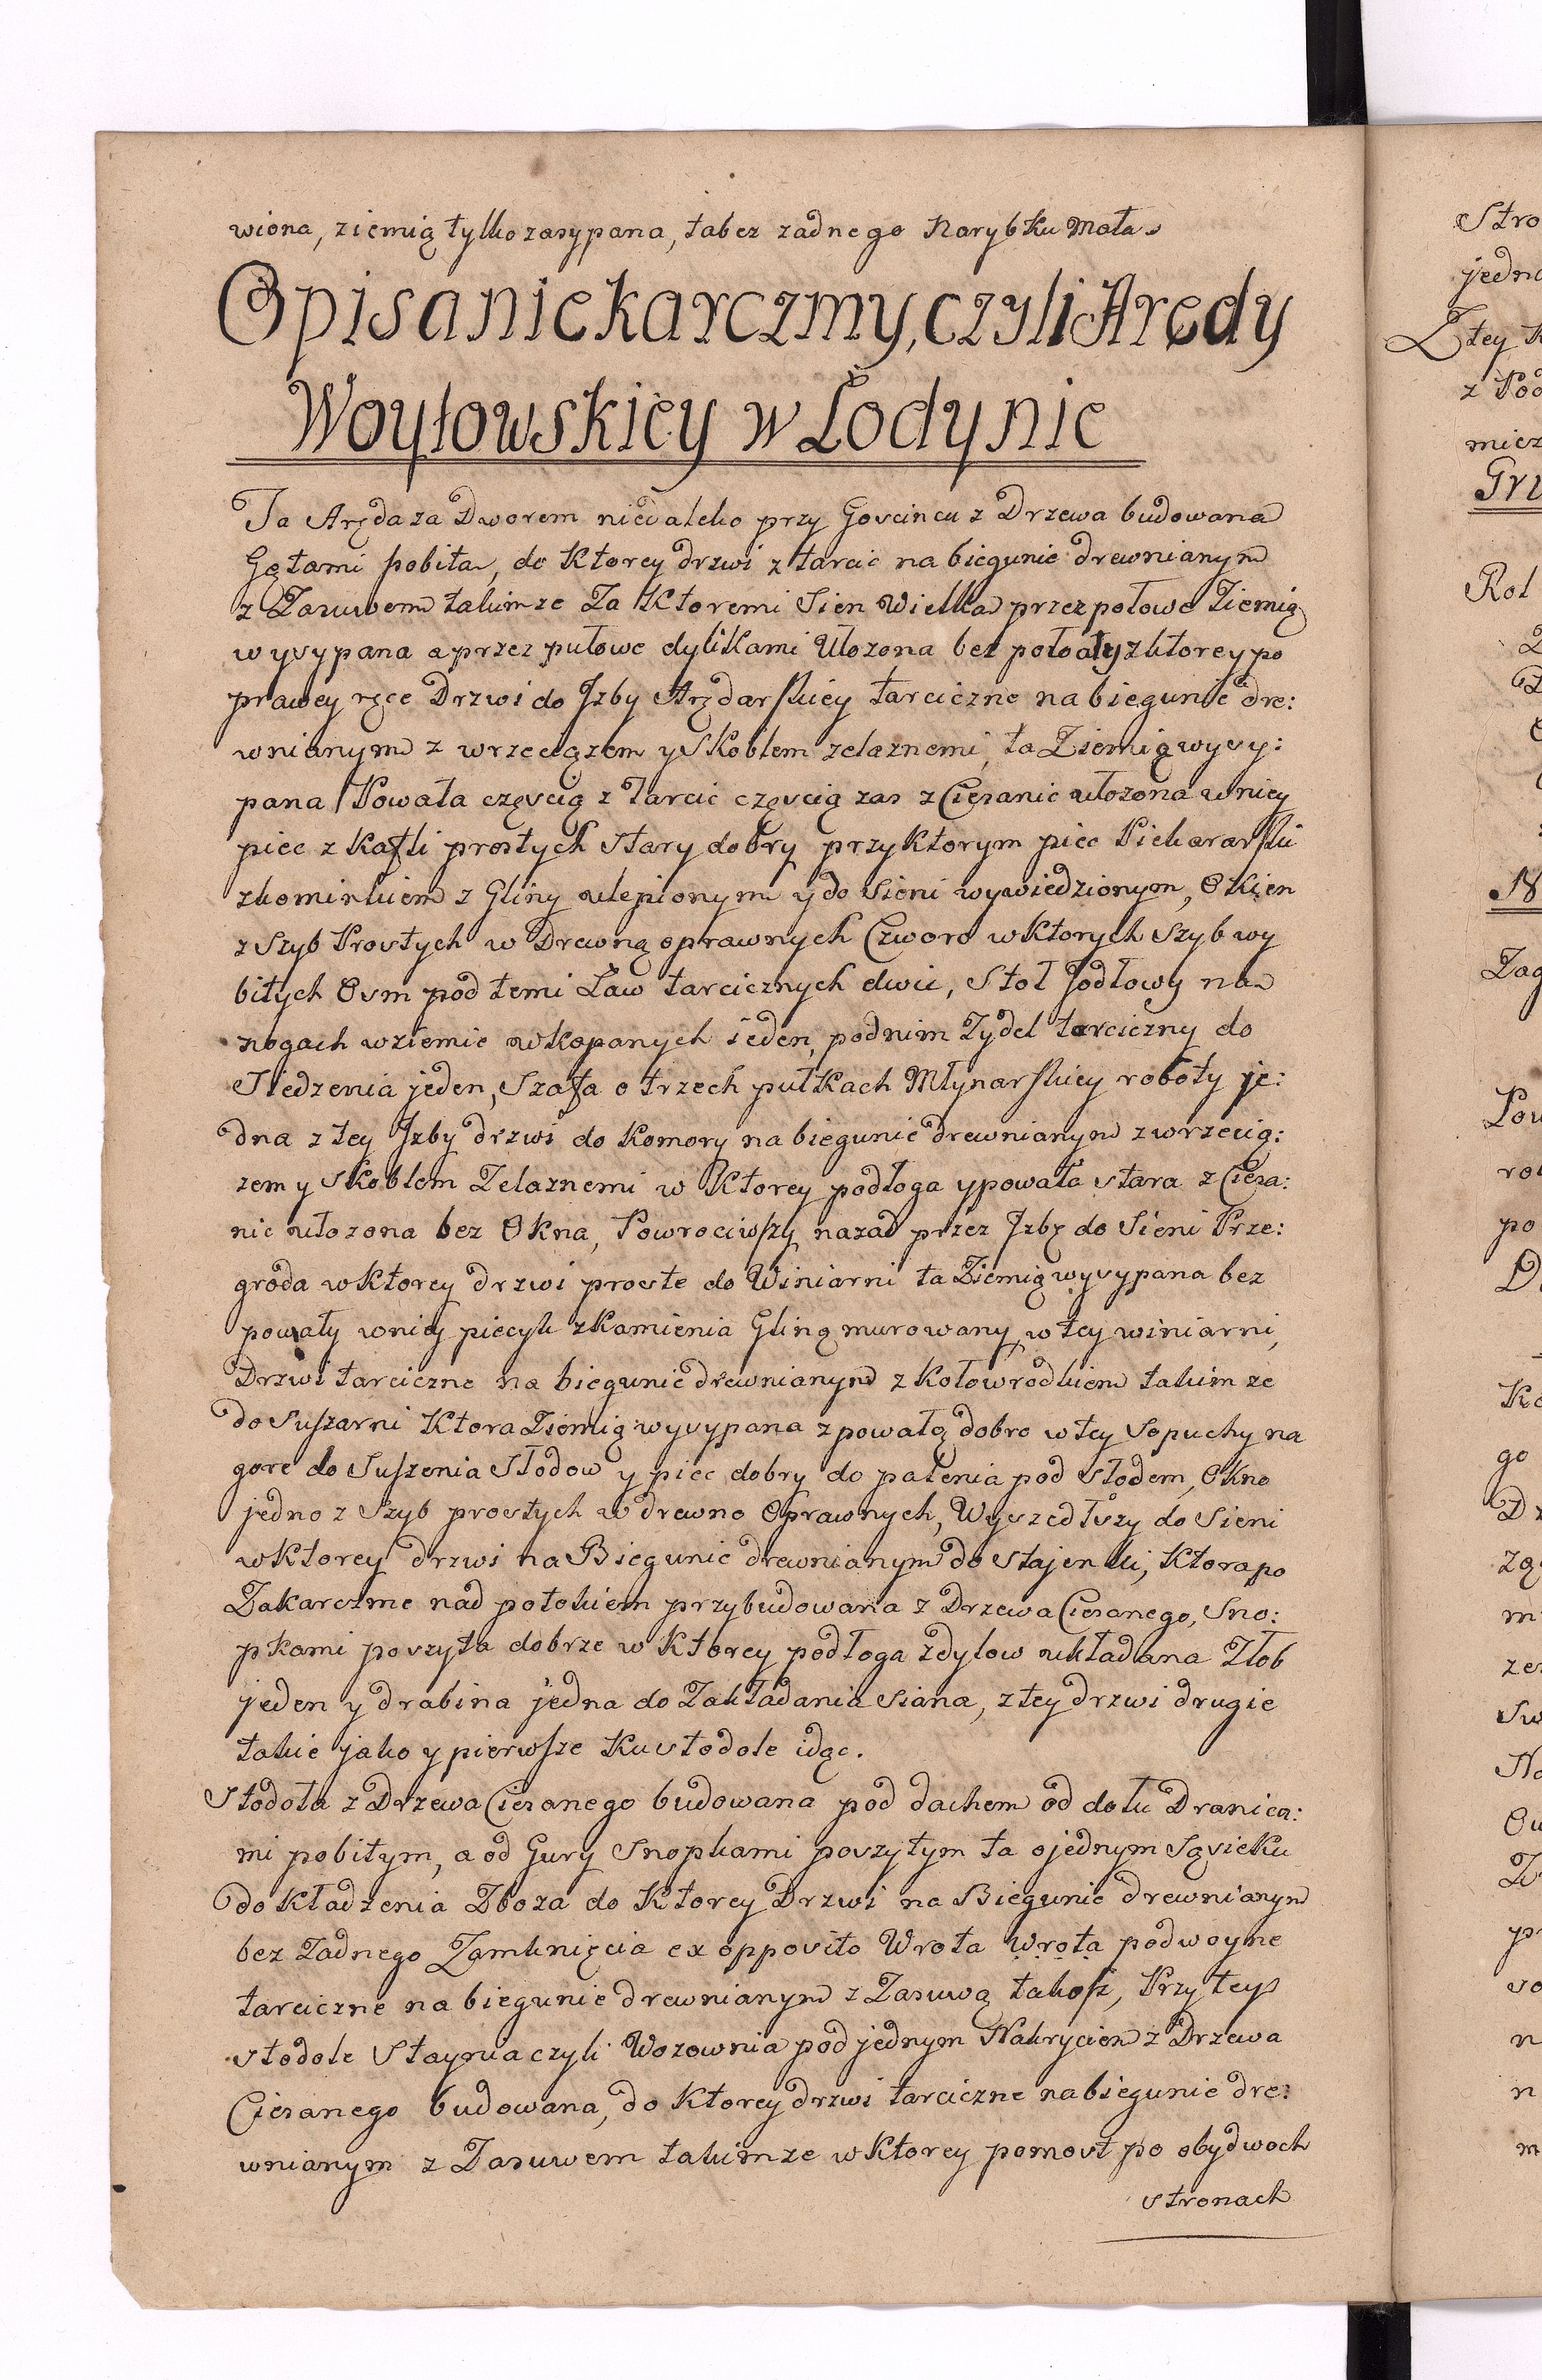 wiona, ziemią tylko zasypana, ta bez zadnego Narybku Mała
Opisanie karczmy, czyli Arędy
Woyłowskiey w Łodynie
Ta Aręda za Dworem niedaleko przy Goscincu z Drzewa budowana
Gątami pobita, do Ktorey drzwi z tarcic na biegunie drewnianym
z Zasuwem takimze Za Ktoremi Sien Wielka przez połowe Ziemią
wysypana a przez pułowe dylikami Ułozona bez połoały z ktorey po
prawey ręce Drzwi do Jzby Arędarskiey tarciczne na biegunie dre:
wnianym z wrzeciązem y Skoblem zelaznemi, ta Ziemią wysy:
pana Powała częscią z Tarcic częscią zas z Ciesanic ułozona w niey
piec z Kafli prostych stary dobry przy Ktorym piec Piekararski
z kominkiem z Gliny ulepionym y do Sieni wywiedzionym, Okien
z Szyb Prostych w Drewną oprawnych Czworo w Ktorych Szyb wy
bitych Osm pod temi Ław tarcicznych dwie, Stoł Jodłowy na
nogach w ziemie wkopanych ieden, pod nim Zydel tarciczny do
Siedzenia jeden, Szafa o trzech pułkach Młynarskiey roboty je:
dna z tey Jzby drzwi do Komory na biegunie drewnianym z wrzecią:
zem y Skoblem Zelaznemi w Ktorey podłoga y powała stara z Ciesa:
nic ułozona bez Okna, Powrociwszy nazad przez Jzbę do Sieni Prze:
groda w Ktorey drzwi proste do Winiarni ta Ziemią wysypana bez
powały w niey piecyk z Kamienia Gliną murowany, w tey winiarni,
Drzwi tarciczne na biegunie drewnianym z Kołowrodkiem takim ze
do Suszarni Ktora Ziemią wysypana z powałą dobro w tey Sopuchy na
gore do Suszenia Słodow y piec dobry do palenia pod słodem, Okno
jedno z Szyb prostych w drewno Oprawnych, Wyszedłszy do Sieni
w Ktorey drzwi na Biegunie drewnianym do stajenki, Ktora po
Zakarczme nad potokiem przybudowana z Drzewa Ciesanego, Sno:
pkami poszyta dobrze w Ktorey podłoga z dylow układana Złob
jeden y drabina jedna do Zakładania siana, z tey drzwi drugie
takie jako y pierwsze Ku stodole idąc.
Stodoła z Drzewa Ciesanego budowana pod dachem od dołu Dranica:
mi pobitym, a od Gury Snopkami poszytym ta o jednym Sąsieku
do Kładzenia Zboza do Ktorey Drzwi na Biegunie drewnianym
bez Zadnego Zamknięcia ex opposito Wrota wrota podwoyne
tarciczne na biegunie drewnianym z Zasuwą takosz, Przy tey
stodole Staynia czyli Wozownia pod jednym Nakryciem z Drzewa
Ciesanego budowana, do Ktorey drzwi tarciczne na biegunie dre:
wnianym z Zasuwem takimze w Ktorey pomost po obydwoch
stronach